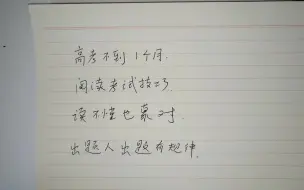 高考不到1个月.
阅读考试技巧
读不懂也蒙对
出题人出题有规律.